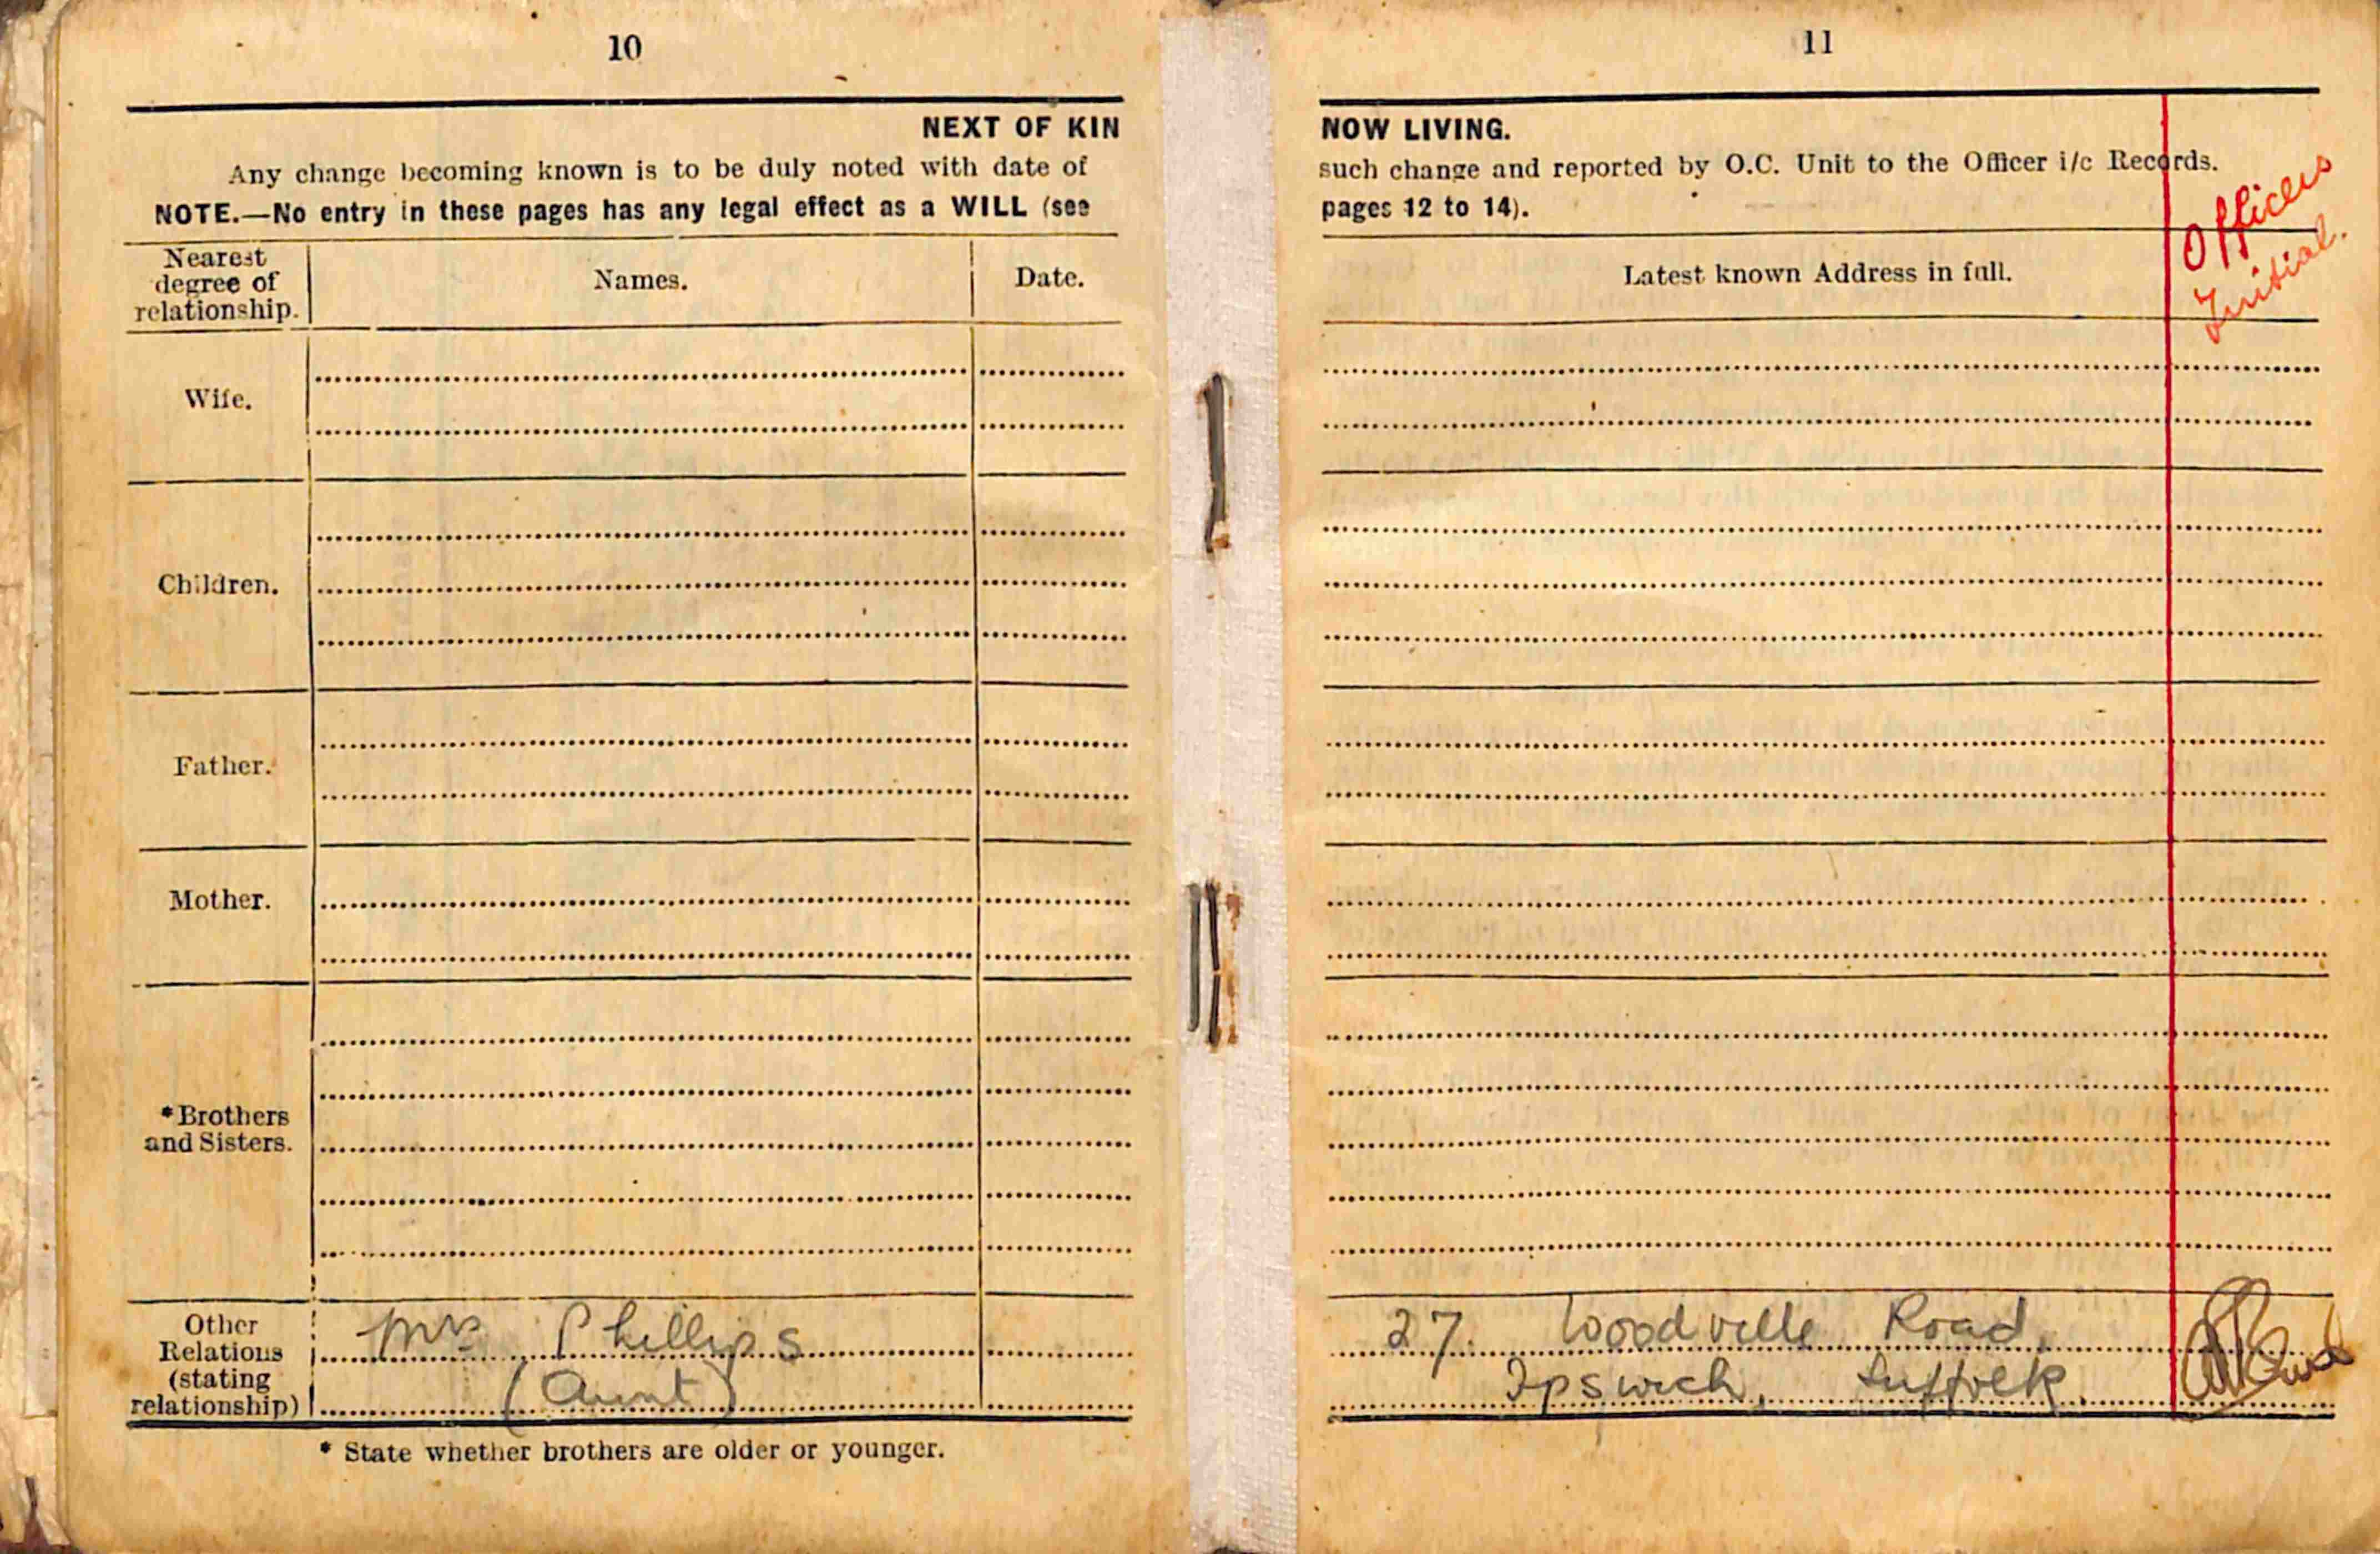 10
NEXT OF KIN
Any change becoming known is to be duly noted with date of
NOTE.—No entry in these pages has any legal effect as a WILL (see
Nearest
degree of
relationship.
Names.
Date.
Wife.
Children.
Father.
Mother.
*Brothers
and Sisters.
Other
Relations
(stating
relationship)
Mrs Phillips
(Aunt)
* State whether brothers are older or younger.
11
NOW LIVING.
such change and reported by O.C. Unit to the Officer i/c Records.
pages 12 to 14).
Latest known Address in full.
Officers
Initial.
27. Woodville Road,
Ipswich, Suffolk.